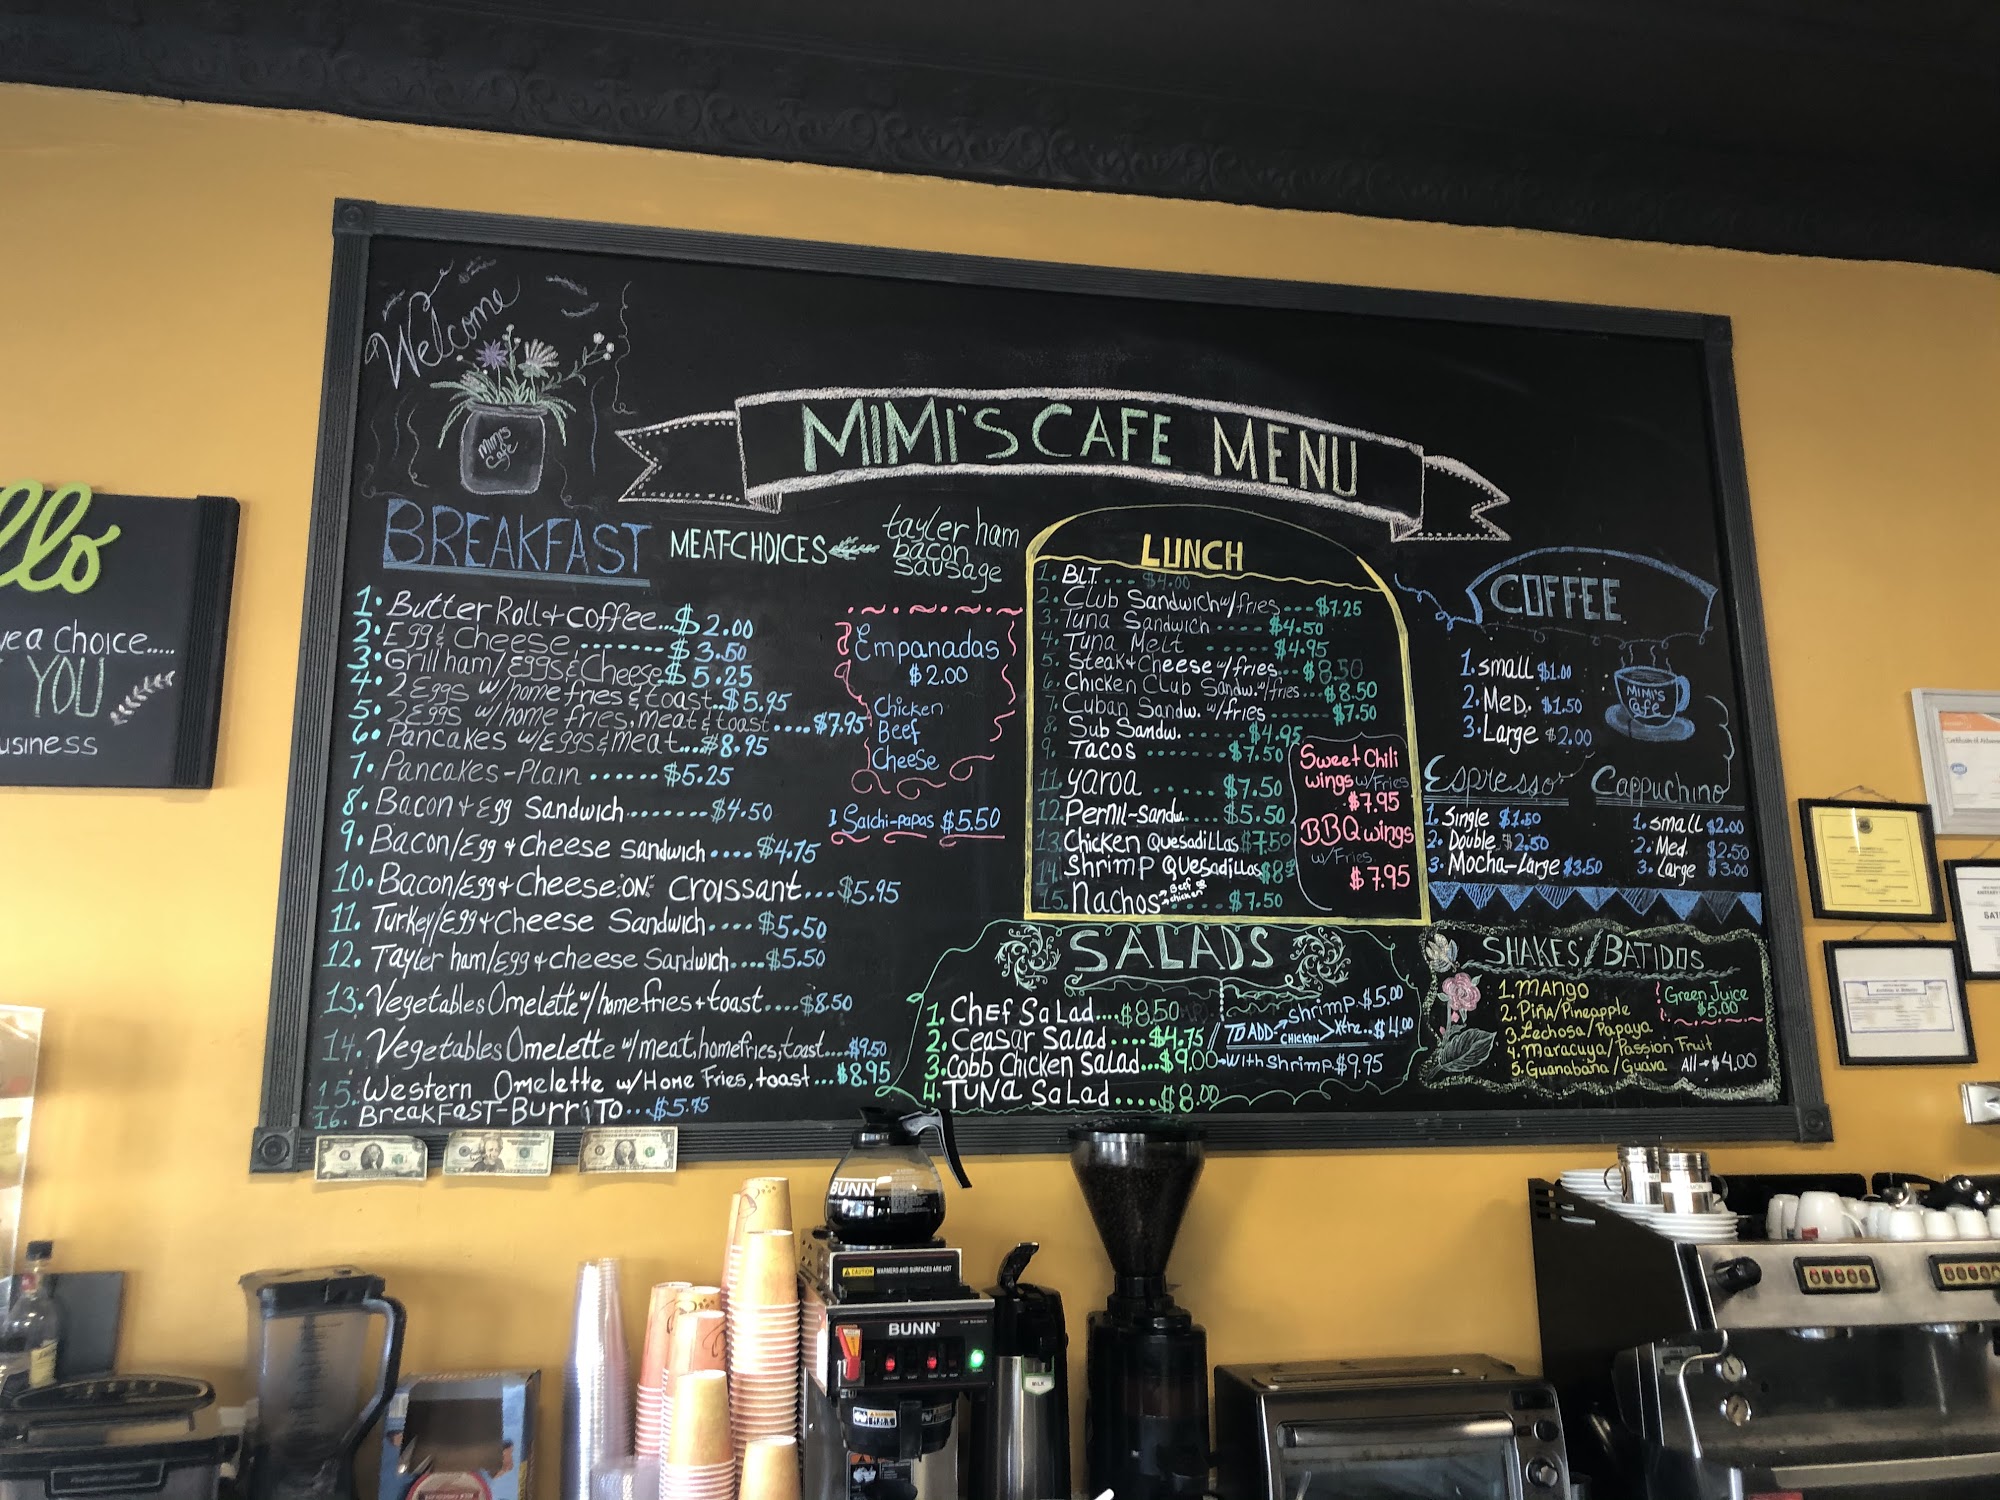 Welcome
Mimi's
Cafe
MIMI'S CAFE MENU
BREAKFAST
MEAT-CHOICES
tayler ham
bacon
sausage
1. Butter Roll + coffee... $2.00
2. Egg & Cheese ........ $3.50
3. Grill ham/Eggs & Cheese $5.25
4. 2 Eggs w/home fries & toast..$5.95
5. 2 Eggs w/home fries, meat & toast ....$7.95
6. Pancakes w/Eggs & meat...$8.95
7. Pancakes-Plain ......$5.25
8. Bacon + Egg Sandwich........$4.50
9. Bacon/Egg + Cheese Sandwich....$4.75
10. Bacon/Egg + Cheese :ON: Croissant...$5.95
11. Turkey/Egg + Cheese Sandwich....$5.50
12. Tayler ham/Egg + cheese Sandwich....$5.50
13. Vegetables Omelette w/homefries + toast....$8.50
14. Vegetables Omelette w/meat, homefries, toast....$9.50
15. Western Omelette w/Home Fries, toast...$8.95
16. BreakFAST-BurriTo...$5.75
Empanadas
$2.00
Chicken
Beef
Cheese
1 Salchi-papas $5.50
LUNCH
1. BLT.... $4.00
2. Club Sandwich w/fries...$7.25
3. Tuna Sandwich ..... $4.50
4. Tuna Melt ..... $4.95
5. Steak + Cheese w/fries...$8.50
6. Chicken Club Sandw. w/fries...$8.50
7. Cuban Sandw. w/fries ......$7.50
8. Sub Sandw. ......$4.95
9. TACOS ........$7.50
11. yaroa ...... $7.50
12. Pernil-Sandw..... $5.50
13. Chicken Quesadillas $7.50
14. Shrimp Quesadillas $8
15. Nachos Beef or chicken ..... $7.50
Sweet Chili
wings w/Fries
$7.95
BBQ wings
w/Fries
$7.95
SALADS
1. Chef Salad....$8.50
2. Ceasar Salad....$4.75
3. Cobb Chicken Salad...$9.00 with Shrimp.$9.95
4. TUNA SaLad ....$8.00
TO ADD Shrimp.$5.00
CHICKEN Xtra...$4.00
COFFEE
1. Small $1.00
2. Med. $1.50
3. Large $2.00
MIMI'S
Cafe
Espresso
1. Single $1.50
2. Double $2.50
3. Mocha-Large $3.50
Cappuchino
1. small $2.00
2. Med $2.50
3. Large $3.00
SHAKES/BATIDOS
1. Mango
2. Piña/Pineapple
3. Lechosa/Papaya
4. Maracuya/Passion Fruit
5. Guanabana/Guava All → $4.00
Green Juice
$5.00
llo
ve a Choice.....
YOU
usiness
BUNN
CAUTION WARMERS AND SURFACES ARE HOT
BUNN
MILK